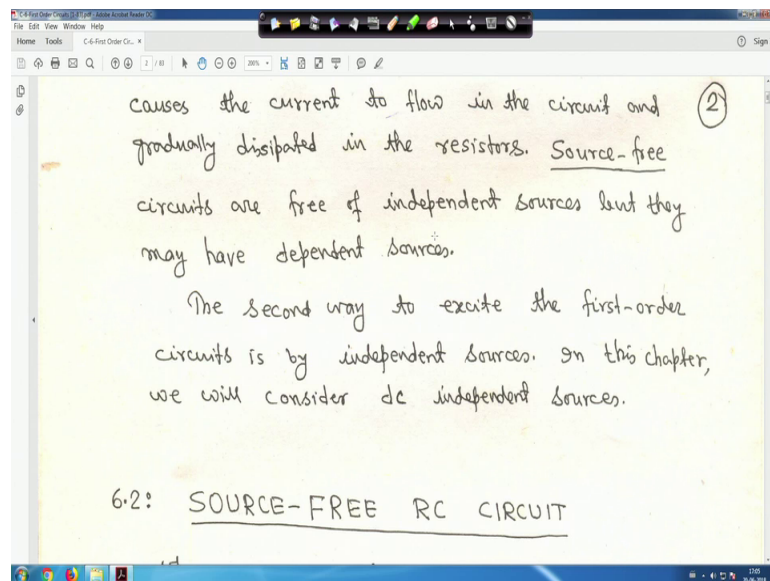 C-6-First Order Circuits [1-83].pdf - Adobe Acrobat Reader DC
File Edit View Window Help
Home Tools C-6-First Order Cir... × Sign
2 / 83 200%
causes the current to flow in the circuit and 2
gradually dissipated in the resistors. Source-free
circuits are free of independent sources but they
may have dependent sources.
The second way to excite the first-order
circuits is by independent sources. In this chapter,
we will consider dc independent sources.
6.2: SOURCE-FREE RC CIRCUIT
17:05